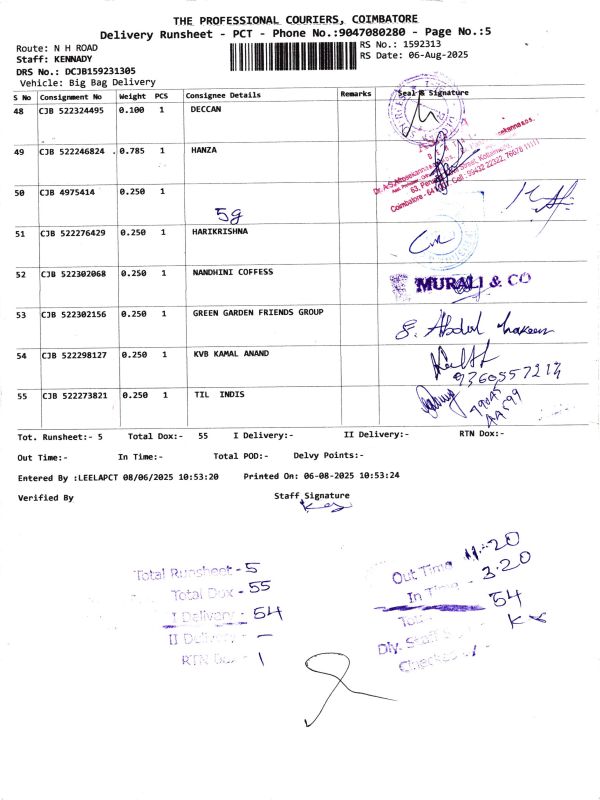 THE PROFESSIONAL COURIERS, COIMBATORE
Delivery Runsheet - PCT - Phone No.:9047080280 - Page No.:5
Route: N H ROAD
RS No.: 1592313
Staff: KENNADY
RS Date: 06-Aug-2025
DRS No.: DCJB159231305
Vehicle: Big Bag Delivery
S No Consignment No Weight PCS Consignee Details Remarks Seal & Signature
48 CJB 522324495 0.100 1 DECCAN
49 CJB 522246824 0.785 1 HANZA
50 CJB 4975414 0.250 1
5g
51 CJB 522276429 0.250 1 HARIKRISHNA
52 CJB 522302068 0.250 1 NANDHINI COFFESS
MURALI & CO
53 CJB 522302156 0.250 1 GREEN GARDEN FRIENDS GROUP
54 CJB 522298127 0.250 1 KVB KAMAL ANAND
9360557214
55 CJB 522273821 0.250 1 TIL INDIS
Tot. Runsheet:- 5 Total Dox:- 55 I Delivery:- II Delivery:- RTN Dox:-
Out Time:- In Time:- Total POD:- Delvy Points:-
Entered By :LEELAPCT 08/06/2025 10:53:20 Printed On: 06-08-2025 10:53:24
Verified By Staff Signature
Total Runsheet - 5
Total Dox - 55
I Delivery - 54
II Delivery - —
RTN Dox - 1
Out Time - 11-20
In Time - 3-20
54
Dly. Staff